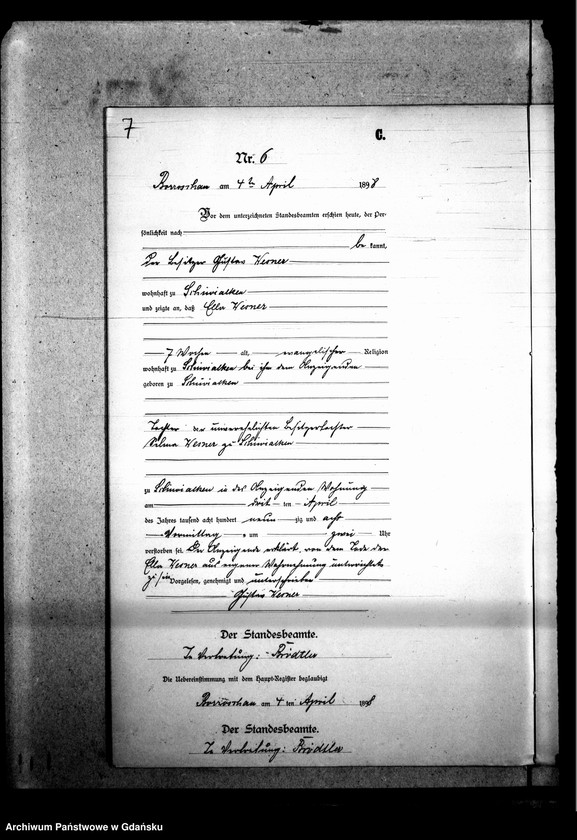 7
C.
Nr. 6
Borroschau am 4ten April 1898
Vor dem unterzeichneten Standesbeamten erschien heute, der Per-
sönlichkeit nach
be kannt,
der Besitzer Gustav Werner
wohnhaft zu Schiwialken
und zeigte an, daß Ella Werner
7 Wochen alt, evangelischer Religion
wohnhaft zu Schiwialken bei ihm dem Anzeigenden
geboren zu Schiwialken
Tochter der unverehelichten Besitzertochter
Selma Werner zu Schiwialken
zu Schiwialken in des Anzeigenden Wohnung
am ten April
des Jahres tausend acht hundert neun zig und acht
Vormittag s um zwei Uhr
verstorben sei. Der Anzeigende erklärt, von dem Tode der
Ella Werner aus eigener Wahrnehmung unterrichtet
zu sein. Vorgelesen, genehmigt und unterschrieben
Gustav Werner
Der Standesbeamte.
In Vertretung:
Die Uebereinstimmung mit dem Haupt-Register beglaubigt
Borroschau am 4 ten April 1898
Der Standesbeamte.
In Vertretung:
Archiwum Państwowe w Gdańsku